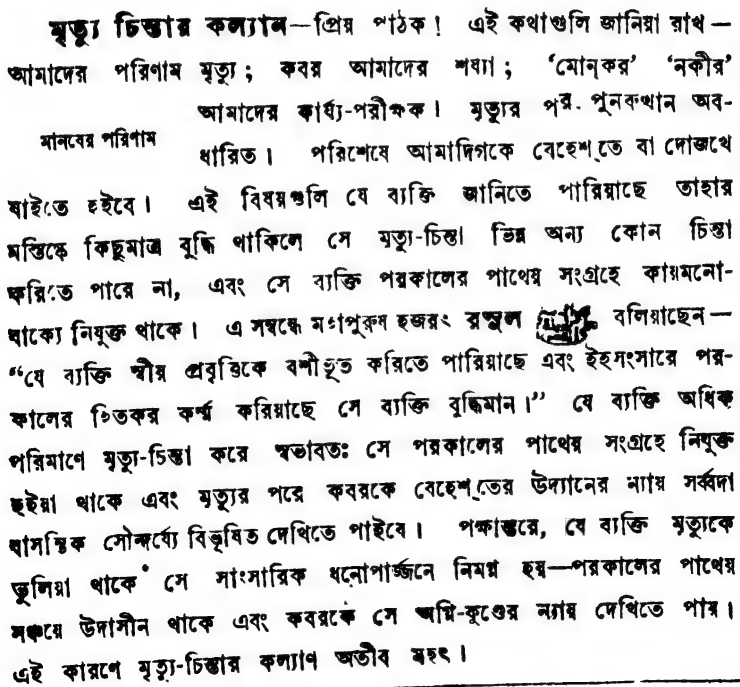 মৃত্যু চিন্তার কল্যান—প্রিয় পাঠক! এই কথাগুলি জানিয়া রাখ—
আমাদের পরিণাম মৃত্যু; কবর আমাদের শয্যা; ‘মোন্‌কর’ ‘নকীর’
আমাদের কার্য্য-পরীক্ষক। মৃত্যুর পর পুনরুত্থান অব-
মানবের পরিণাম
ধারিত। পরিশেষে আমাদিগকে বেহেশ্‌তে বা দোজখে
যাইতে হইবে। এই বিষয়গুলি যে ব্যক্তি জানিতে পারিয়াছে তাহার
মস্তিষ্কে কিছুমাত্র বুদ্ধি থাকিলে সে মৃত্যু-চিন্তা ভিন্ন অন্য কোন চিন্তা
করিতে পারে না, এবং সে ব্যক্তি পরকালের পাথেয় সংগ্রহে কায়মনো-
বাক্যে নিযুক্ত থাকে। এ সম্বন্ধে মহাপুরুষ হজরৎ রসুল বলিয়াছেন—
“যে ব্যক্তি স্বীয় প্রবৃত্তিকে বশীভূত করিতে পারিয়াছে এবং ইহসংসারে পর-
কালের হিতকর কর্ম্ম করিয়াছে সে ব্যক্তি বুদ্ধিমান।” যে ব্যক্তি অধিক
পরিমাণে মৃত্যু-চিন্তা করে স্বভাবতঃ সে পরকালের পাথেয় সংগ্রহে নিযুক্ত
হইয়া থাকে এবং মৃত্যুর পরে কবরকে বেহেশ্‌তের উদ্যানের ন্যায় সর্ব্বদা
বাসন্তিক সৌন্দর্য্যে বিভূষিত দেখিতে পাইবে। পক্ষান্তরে, যে ব্যক্তি মৃত্যুকে
ভুলিয়া থাকে সে সাংসারিক ধনোপার্জ্জনে নিমগ্ন হয়—পরকালের পাথেয়
সঞ্চয়ে উদাসীন থাকে এবং কবরকে সে অগ্নি-কুণ্ডের ন্যায় দেখিতে পায়।
এই কারণে মৃত্যু-চিন্তার কল্যাণ অতীব মহৎ।